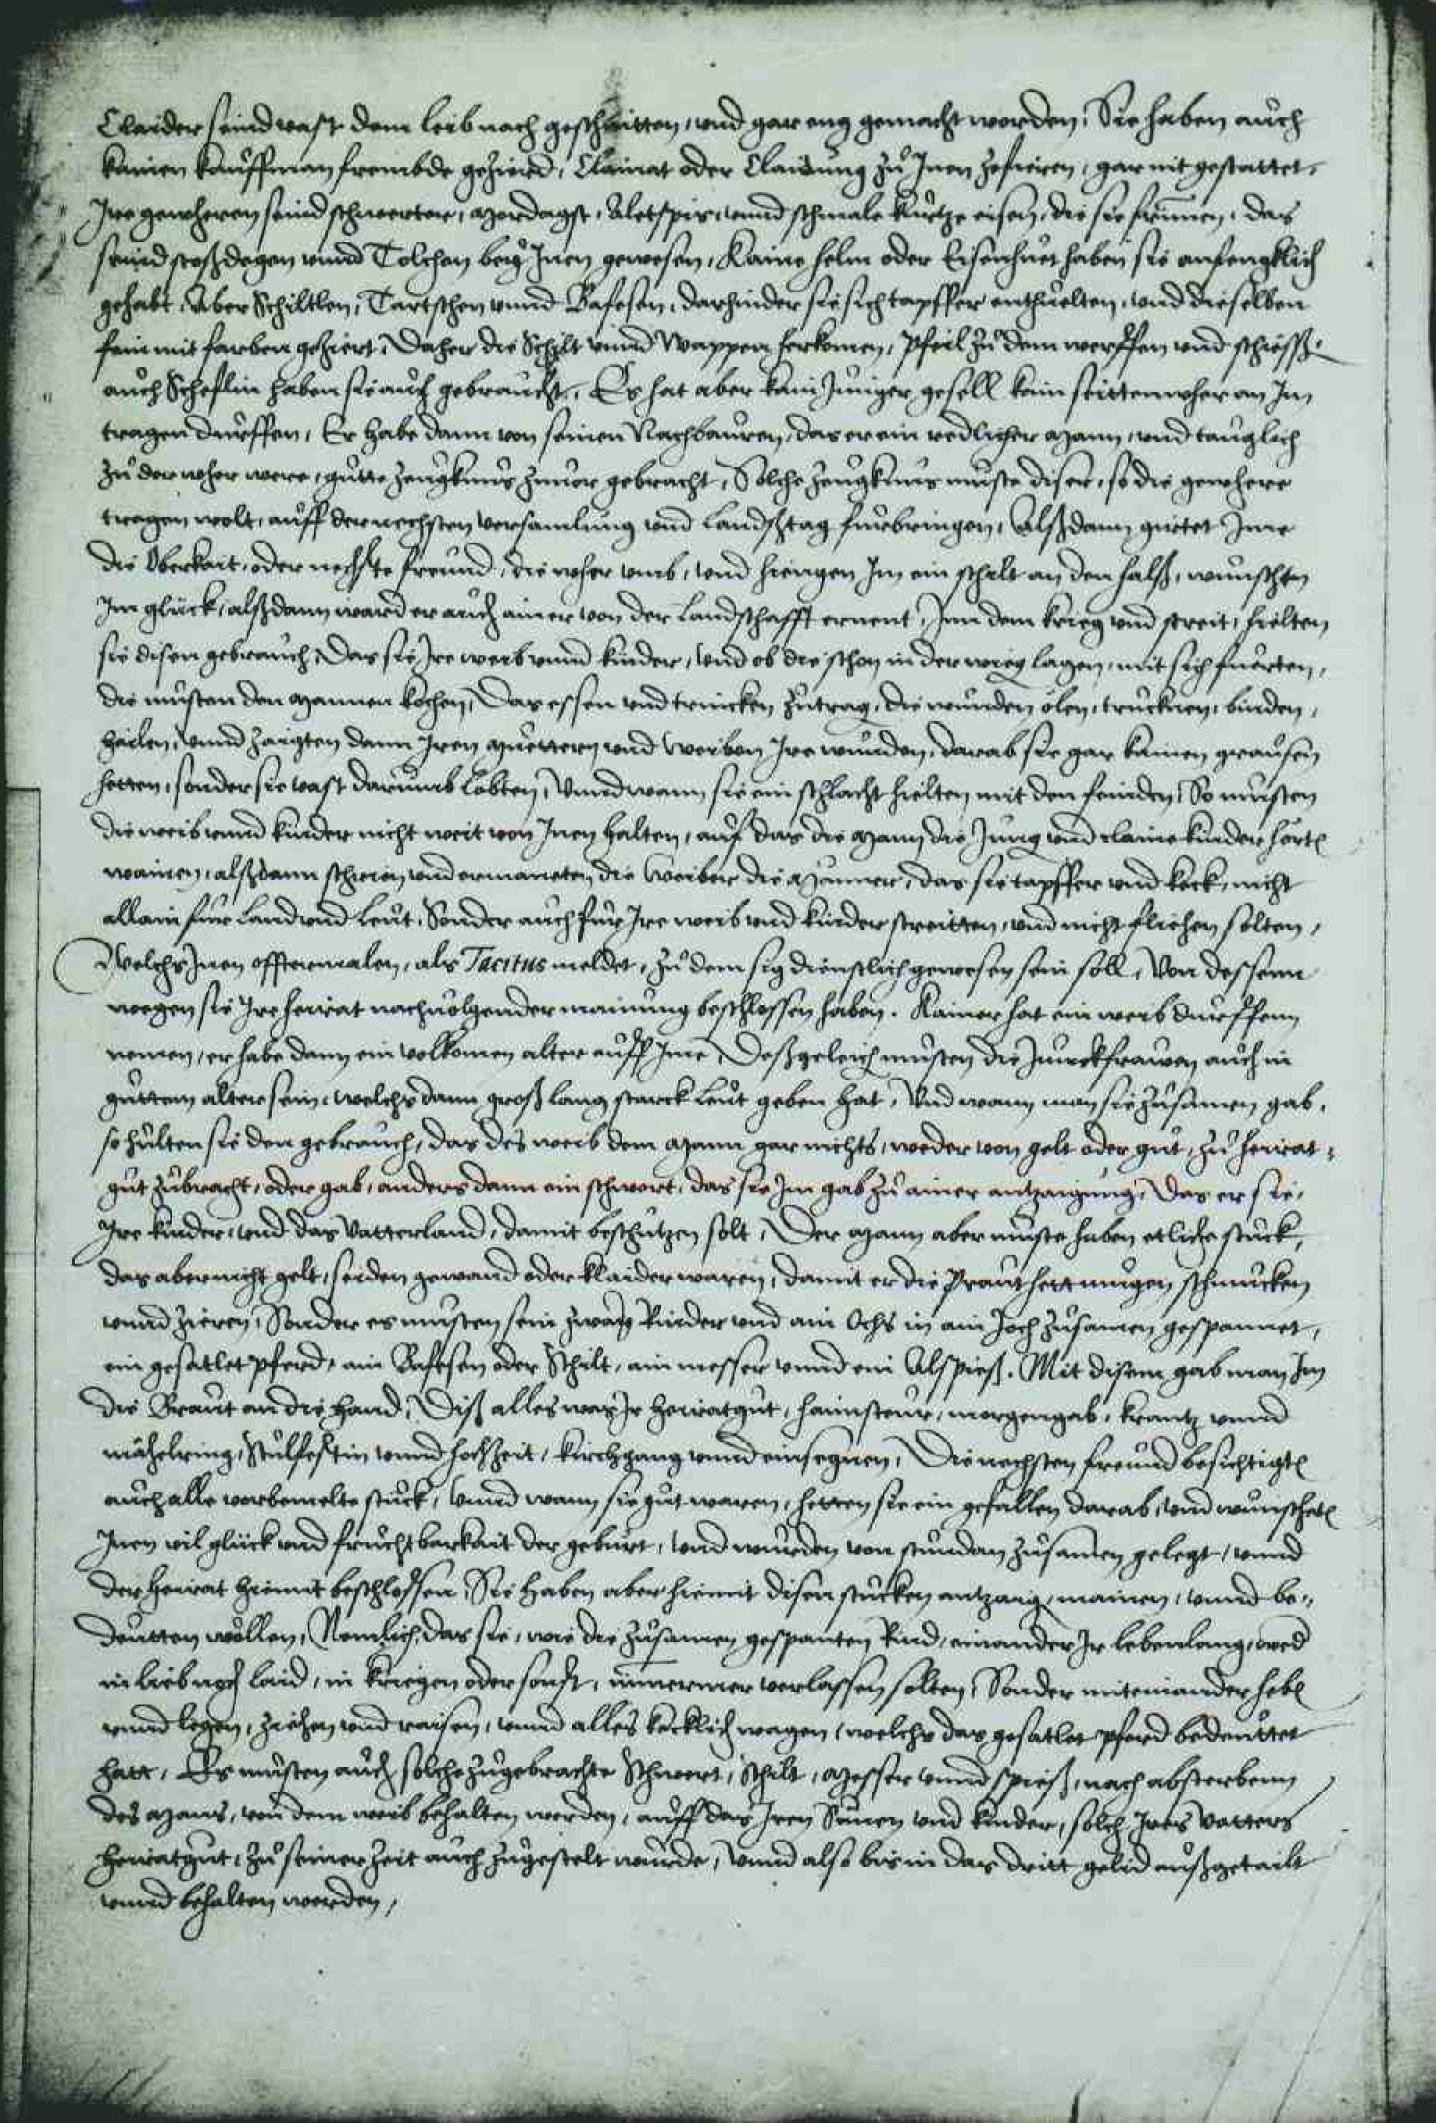 Claider seind vast dem leib nach geschnitten, und gar eng gemacht worden, Sie haben auch
kainen kauffman frembde gezierd, Clainat oder Claidung zu Inen zefieren, gar nit gestattet,
Ire geweheren seind schwerter, mordagst, Aletspis, unnd schmale kurtze eisen, die sie, das
seind stoßdegen unnd Tolchen bey Inen gewesen, Kaine helm oder Eisenhuet haben sie anfengklich
gehabt, Aber Schiltlen, Tartschen unnd Pafesen, darhinder sie sich tapffer enthielten, und dieselben
fein mit farben geziert, Daher die Schilt unnd Wappen herkomen, Pfeil zu dem werffen und schiessen
auch Scheflin haben sie auch gebraucht, Es hat aber kain Junger gesell kain seittenwher an Im
tragen durffen, Er habe dann von seinen Nachbauren, das er ein redlicher Mann, und tauglich
zu der wher were, gutte zeugknus zuvor gebracht, Solche zeugknus muste diser, so die gewhere
tragen wolt, auff der nechsten versamlung und Landßtag furbringen, Alßdann gurtet Ime
die Oberkait, oder nechste freund, die wher umb, und hiengen Im ein schilt an den halß, wunschten
Im gluck, alßdann ward er auch ainer von der Landtschafft ernent, Inn dem krieg und streit, hielten
sie disen gebrauch, Das sie Ire weib unnd kinder, und ob die schon in der wieg lagen, mit sich fuerten,
die musten den Mannen kochen, Das essen und trincken zutrag, die wunden ölen, trucknen, binden,
hailen, unnd zaigten dann Iren Muettern und Weiben Ire wunden, darab sie gar kainen grausen
hetten, sonder sie vast darumb lobten, Unnd wann sie ein schlacht hielten mit den feinden, So musten
die weib unnd kinder nicht weit von Inen halten, auf das die Mann die Jung und claine kinder hörten
wainen, alßdann schrien und ermaneten die Weiber die Männer, das sie tapffer und keck, nicht
allain fur Land und Leut, Sonder auch fur Ire weib und kinder streitten, und nicht fliehen solten,
Welchs Inen offtermalen, als Tacitus meldet, zu dem sig dienstlich gewesen sein soll, Von dessenn
wegen sie Ire heirat nachvolgender mainung beschlossen haben. Kainer hat ein weib durffenn
nemen, er habe dann ein volkomen alter auff Ime, Deßgeleich musten die Junckfrawen auch in
guttem alter sein, welchs dann groß lang starck Leut geben hat, Und wann man sie zusamen gab,
so hielten sie den gebrauch, das des weib dem Mann gar nichts, weder von gelt oder gut, zu heirat,
gut zubracht, oder gab, anders dann ein schwert, das sie Im gab zu ainer antzaigung, Das er sie,
Ire kinder, und das Vatterland, damit beschutzen solt, Der Mann aber muste haben etliche stuck,
das aber nicht gelt, seiden gewand oder klaider waren, damit er die Praut hett mugen schmucken
unnd zieren, Sonder es musten sein zway Rinder und ain Ochs in ain Joch zusamen gespannet,
ein gesatlet pferd, ain Pafesen oder Schilt, ain messer unnd ein Alspieß. Mit disem gab man Im
die Braut an die hand, Diß alles was Ir heiratgut, haimsteur, morgengab, krantz unnd
mähelring, Stulfestin unnd hochzeit, kirchgang unnd einsegnen, Die nechsten freund besichtigten
auch alle vorbemelte stuck, Unnd wann sie gut waren, hetten sie ein gefallen darab, und wunscheten
Inen vil gluck und fruchtbarkait der geburt, und wurden von stundan zusamen gelegt, unnd
der heirat hiemit beschlossen, Sie haben aber hiemit disen stucken antzaig, mainen, unnd be„
deutten wöllen, Nemlich, das sie, wie die zusamen gespanten Rind, einander Ir lebenlang, wed
in lieb noch laid, in kriegen oder sonst, nimermer verlassen solten, Sonder miteinander heben
unnd legen, ziehen und raisen, unnd alles kecklich wagen, welchs das gesatlet pferd bedeuttet
hatt, Es musten auch solche zugebrachte Schwert, Schilt, Messer unnd spieß, nach absterbenn
des Mans, von dem weib behalten werden, auff das Iren Sünen und kinder, solch Ires vatters
heiratgut, zu seiner zeit auch zugestelt wurde, Unnd also bis in das dritt gelid außgetailt
unnd behalten werden,